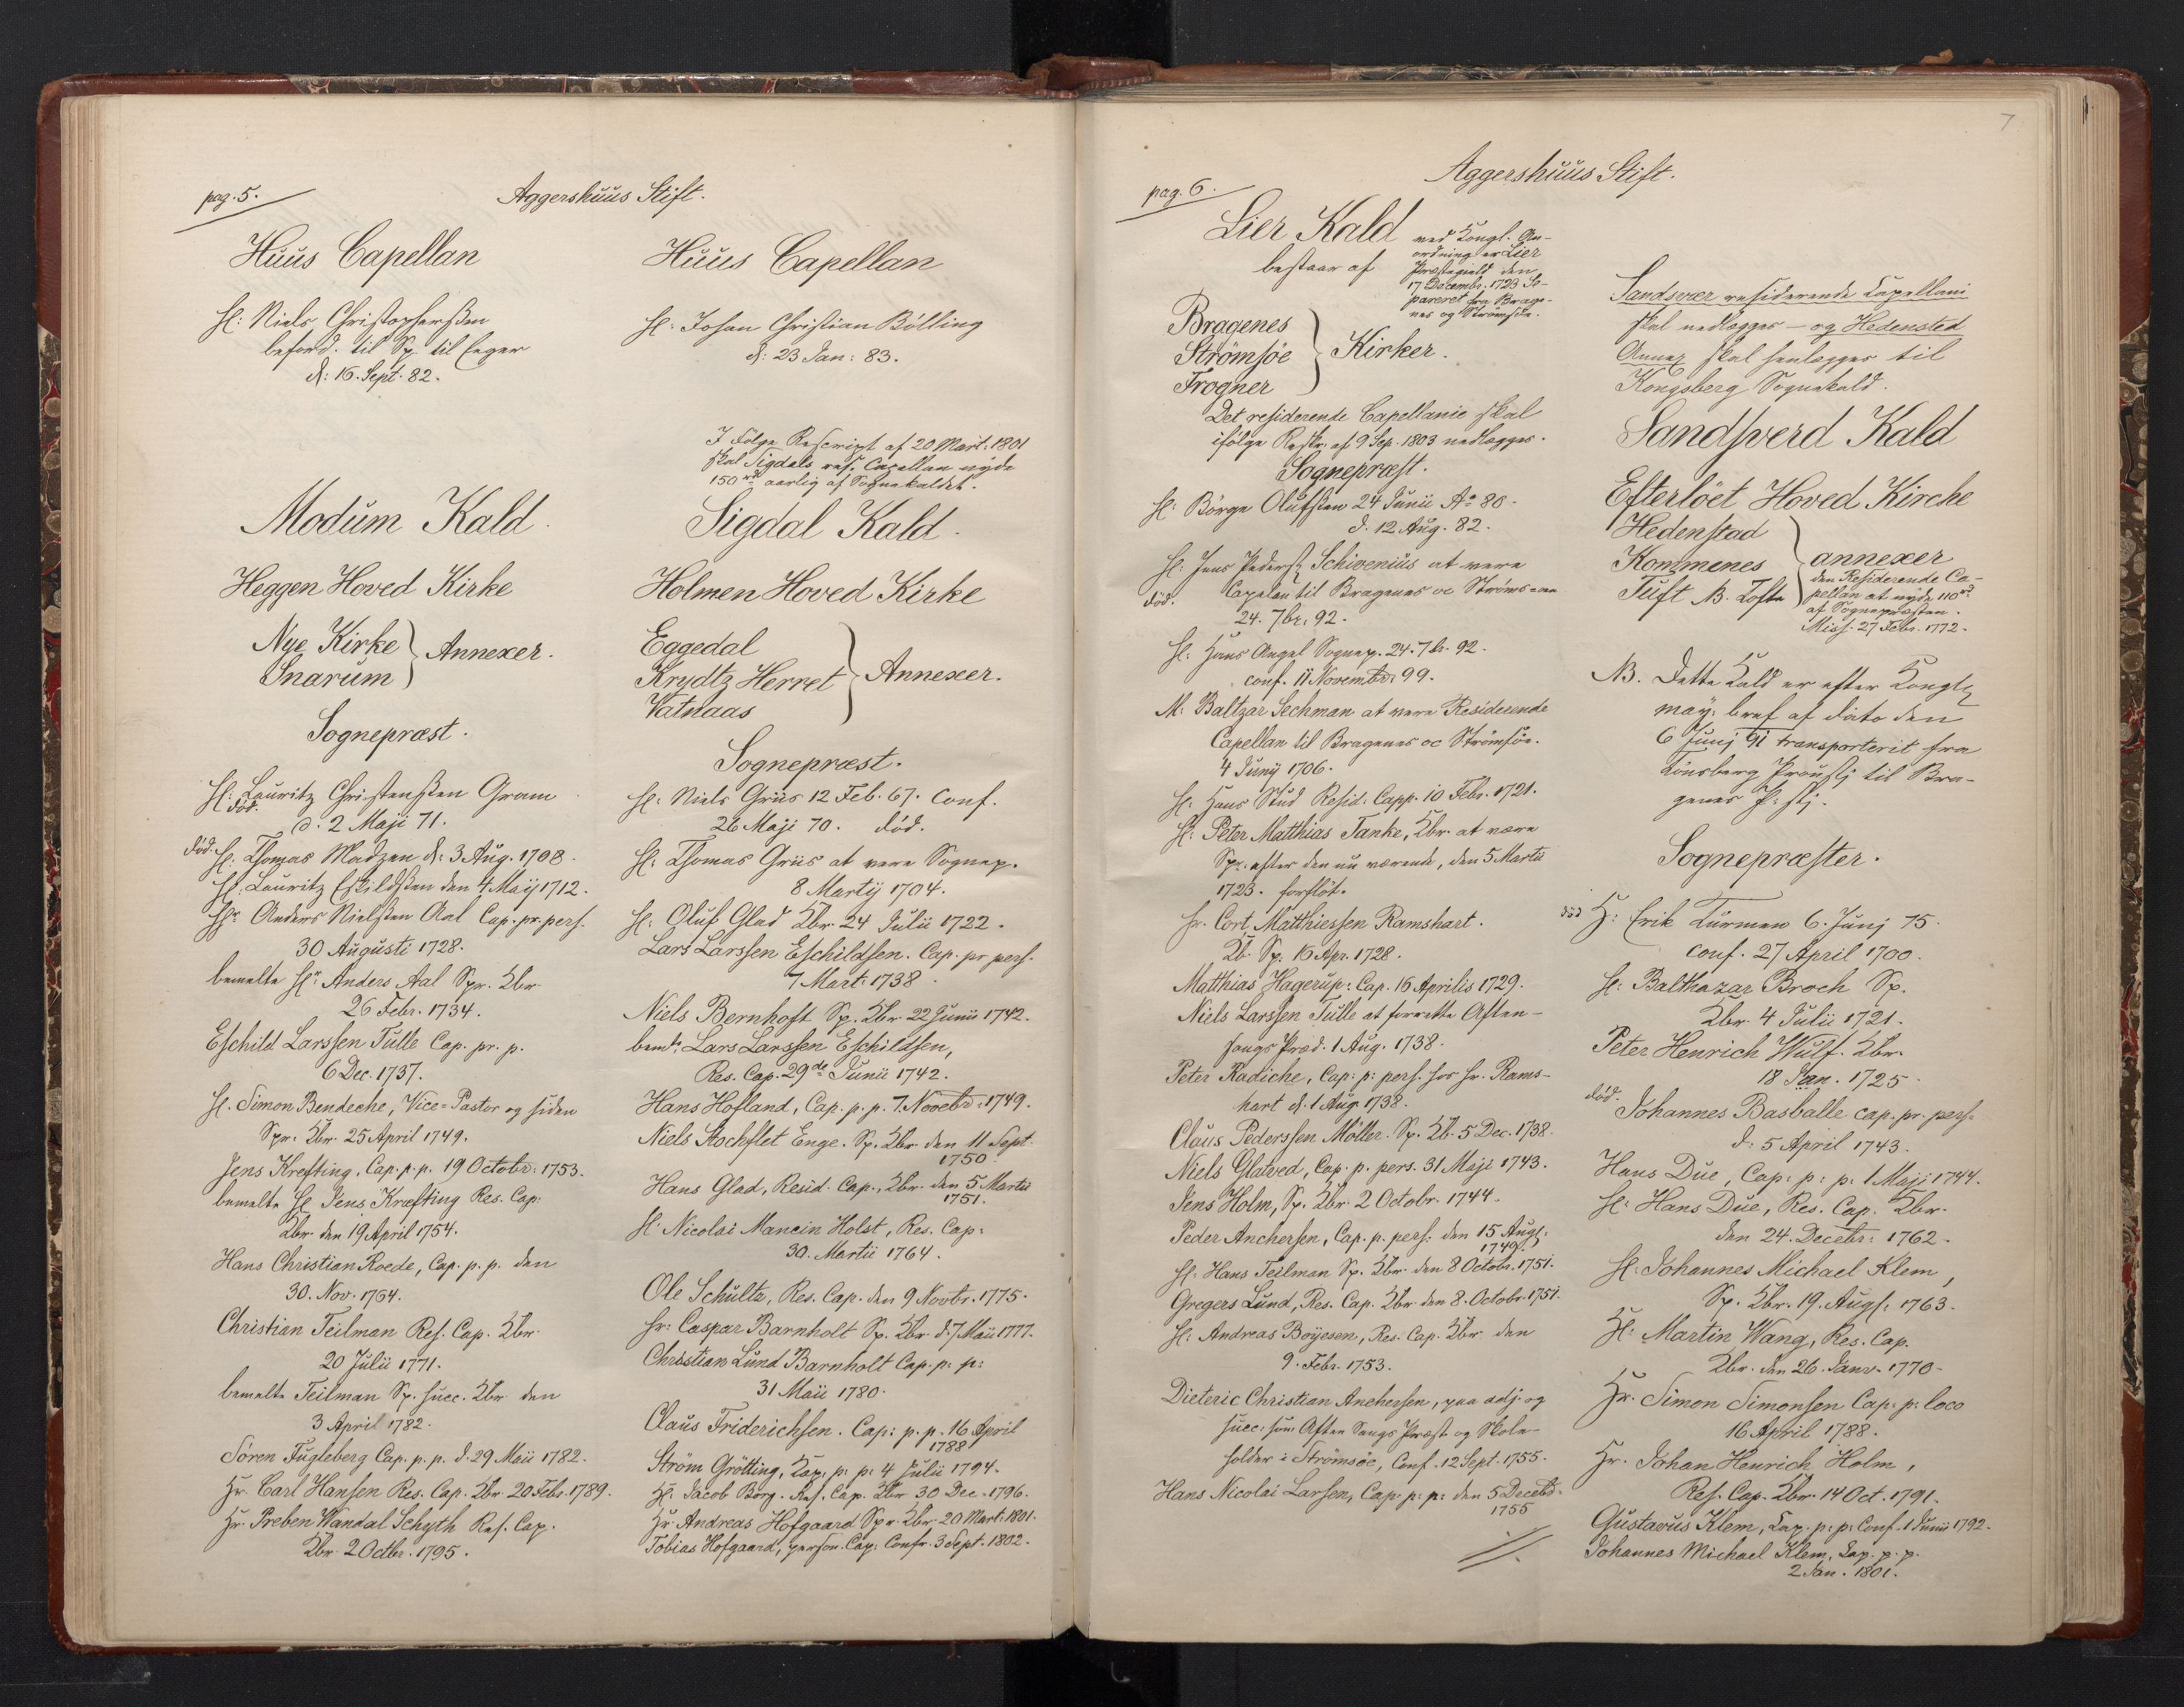 pag. 5.
Aggershuus Stift.
Huus Capellan
Hl: Niels Christophersen
beford. til Sp. til Eeger
d: 16. Sept. 82.
Modum Kald.
Heggen Hoved Kirke
Nye Kirke
Snarum
Annexer.
Sognepræst.
Hl: Lauritz Christensen Gram
død. d. 2 Maji 71.
død. Hl: Thomas Madzen d: 3 Aug. 1708.
Hl: Lauritz Eskildsen den 4 Maij 1712.
Hr. Anders Nielsen Aal Cap. pr. pers.
30 Augusti 1728.
bemelte Hr. Anders Aal Spr. Kbr.
26 Febr. 1734.
Eschild Larssen Tulle Cap. pr. p.
6 Dec. 1737.
Hl. Simon Bendeche, Vice-Pastor og siden
Spr. Kbr. 25 April 1749.
Jens Krefting, Cap. p. p. 19 Octobr: 1753.
bemelte Hl Jens Kræfting Res. Cap:
Kbr. den 19 April 1754.
Hans Christian Roede, Cap. p. p. den
30. Nov. 1764.
Christian Teilman Res. Cap. Kbr.
20 Julii 1771.
bemelte Teilman Sp. succ. Kbr. den
3 April 1782.
Sören Fugleberg Cap. p. p. d. 29 Maii 1782.
Hr. Carl Hansen Res. Cap. Kbr. 20 Febr. 1789.
Hr. Preben Wandal Schyth Res. Cap.
Kbr. 2 Octbr. 1795.
Huus Capellan
Hl: Johan Christian Bölling
d: 23 Jan: 83.
I Følge Rescript af 20 Mart. 1801
skal Sigdals res. Capellan nyde
150 rd aarlig af Sognekaldet.
Sigdal Kald.
Holmen Hoved Kirke
Eggedal
Krydtz Herret
Vatnaas
Annexer.
Sognepræst.
Hl: Niels Griis 12 Feb. 67. Conf.
26 Maji 70. død.
Hl: Thomas Griis at vere Sognep.
8 Martij 1704.
Hl: Oluf Glad Kbr. 24 Julii 1722.
Lars Larssen Eschildsen. Cap. pr pers.
7 Mart. 1738
Niels Bernhoft Sp. Kbr. 22 Junii 1742.
bemte. Lars Larssen Eschildsen,
Res. Cap. 29de Junii 1742.
Hans Hofland, Cap. p. p. 7. Novebr. 1749.
Niels Stochflet Enge. Sp. Kbr. den 11 Sept.
1750
Hans Glad, Resid. Cap., Kbr. den 5 Martii
1751.
Hl. Nicolai Mancin Holst, Res. Cap:
30. Martii 1764.
Ole Schultz, Res. Cap. den 9 Novbr. 1775.
Hr: Caspar Barnholt Sp. Kbr. d. 7 Maii 1777.
Christian Lund Barnholt Cap. p: p:
31 Maii 1780.
Claus Friderichsen. Cap: p. p. 16 April
1788
Ström Grötting, Cap: p: p: 4 Julii 1794.
Hr. Jacob Borg. Res. Cap. Kbr 30 Dec. 1796.
Hr. Andreas Hofgaard Spr. Kbr. 20 Mart. 1801.
Tobias Hofgaard, person. Cap: Confr. 3 Sept. 1802.
7
pag. 6.
Aggershuus Stift.
Lier Kald
bestaar af
ved Kongl. An-
ordning er Lier
Præstegield den
17 Decembr. 1723 Se-
pareret fra Brage-
nes og Strömsöe.
Bragenes
Strömsöe
Frogner
Kirker.
Det residerende Capellanie skal
ifölge Rescr. af 9 Sep. 1803 nedlegges.
Sognepræst.
Hl: Börge Olufsen 24 Junii Ao 80.
d. 12 Aug. 82.
Hl. Jens Peders. Schivenius at vere
død. Capelan til Bragenes oc Ströms-
24. 7br. 92.
Hl: Hans Angel Sognep. 24. 7br. 92.
conf. 11 Novembr. 99.
M. Baltzar Sechman at vere Residerende
Capellan til Bragenes oc Strömsöe.
4 Junij 1706.
Hl: Hans Stud Resid: Capp. 10 Febr. 1721.
Hl: Peter Matthias Tanke, Kbr. at være
Spr. efter den nu værende, den 5 Martii
1723. forflöt.
Hr. Cort Matthiessen Ramshart.
Kb. Sp. 16 Apr. 1728.
Matthias Hagerup: Cap. 16 Aprilis 1729.
Niels Larssen Tulle at forrette Aften-
sangs Præd. 1 Aug. 1738.
Peter Radiche, Cap: p: pers. hos Hr. Rams-
hart d. 1 Aug 1738.
Claus Pederssen Möller. Sp. Kb. 5 Dec. 1738.
Niels Glatved, Cap. p. pers. 31 Maji 1743.
Jens Holm, Sp. Kbr. 2 Octobr. 1744.
Peder Anchersen, Cap. p. pers. den 15 Augs.
1749.
Hl: Hans Teilman Sp. Kbr. den 8 Octobr. 1751.
Gregers Lund, Res. Cap. Kbr. den 8. Octobr. 1751.
Hl: Andreas Boyesen, Res. Cap. Kbr. den
9. Febr. 1753.
Dieteric Christian Anchersen, paa adj: og
succ. som Aften Sangs Præst og Skole-
holder i Strömsöe, Conf. 12 Sept. 1755.
Hans Nicolai Larsen, Cap: p: p: den 5 Decebr.
1755
Sandsvær residerende Capellani
skal nedlægges - og Hedensted
Annex skal henlægges til
Kongsberg Sognekald.
Sandsverd Kald
Efterlöet Hoved Kirche
Hedenstad
Kommenes
Tuft NB. Tofte
annexer
den Residerende Ca-
pellan at nyde 110 rd
af Sognepræsten.
Miss. 27 Febr. 1772.
NB. Dette Kald er efter Kongl.
May: bref af dato den
6 Junj 91 transporterit fra
Tönsberg Proustj til Bra-
genes
Sognepræster.
død H: Erik Lürmen 6. Junj 75.
conf. 27 April 1700.
Hl: Balthazar Broch Sp.
Kbr. 4 Julii 1721.
Peter Henrich Wulf. Kbr.
18 Jan. 1725.
død.
Johannes Basballe cap. pr. pers.
d. 5 April 1743.
Hans Due, Cap: p: p: 1 Maji 1744.
Hl: Hans Due, Res. Cap. Kbr.
den 24. Decebr: 1762.
Hl. Johannes Michael Klem,
Sp. Kbr. 19. Augs: 1763.
Hl: Martin Wang, Res. Cap.
Kbr. den 26. Janv. 1770.
Hr. Simon Simonsen Cap: p: loco
16 April 1788.
Hr. Johan Henrich Holm,
Res. Cap. Kbr. 14 Oct. 1791.
Gustavus Klem, Cap. p: p: Conf. 1 Junii 1792.
Johannes Michael Klem, Cap. p. p.
2 Jan. 1801.